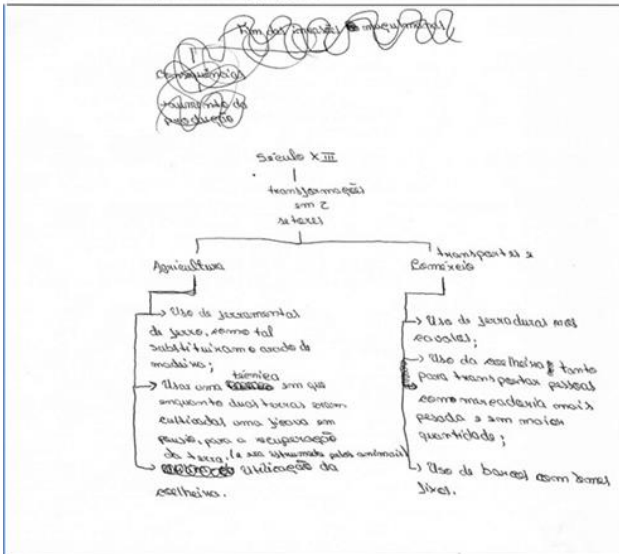 Fim das invasões muçulmanas
Consequências
→ aumento da
produção
Século XIII
transformações
em 2
setores
Agricultura
→ Uso de ferramentas
de ferro, como tal
substituiram o arado de
madeira;
→ Usar uma técnica em que
enquanto duas terras eram
cultivadas uma ficava em
pousio, para a recuperação
da terra. (e era estrumada pelos animais)
→ Utilização da
coelheira.
transportes e
Comércio
→ Uso de ferraduras nos
cavalos;
→ Uso da coelheira tanto
para transportar pessoas
como mercadoria mais
pesada e em maior
quantidade;
→ Uso de barcos com